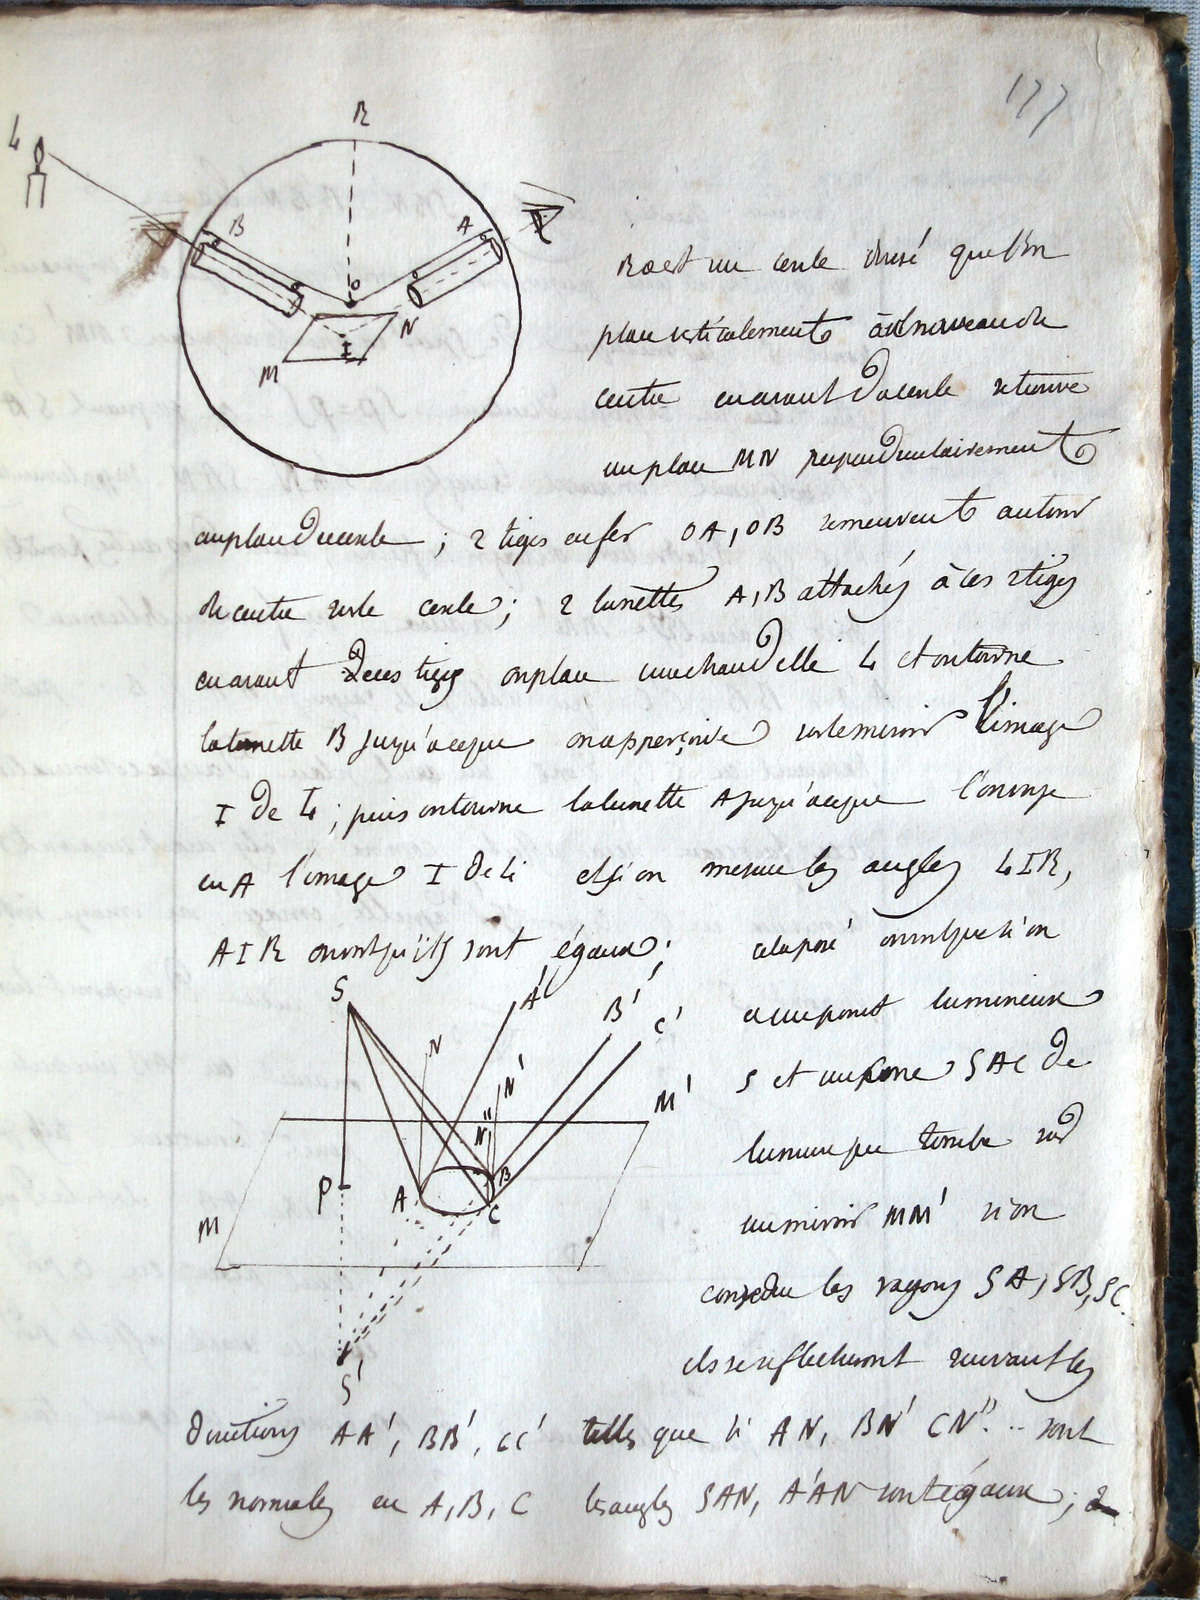 177
R
L
B
A
O
N
I
M
R est un cercle divisé que l'on
place verticalement au niveau du
centre en avant du cercle se trouve
un plan MN perpendiculairement
au plan du cercle ; 2 tiges en fer OA, OB se meuvent autour
du centre sur le cercle ; 2 lunettes A, B attachés à ces 2 tiges
en avant de ces tiges on place une chandelle L et on tourne
la lunette B jusqu'à ce que on apperçoive sur le miroir l'image
I de L ; puis on tourne la lunette A jusqu'à ce que l'on voye
en A l'image I de L et si on mesure les angles LIR,
AIR on voit qu'ils sont égaux ; cela posé on voit que si on
a un point lumineux
S et un cone SAC de
lumiere qui tombe sur
un miroir MM' si on
considere les rayons SA, SB, SC
ils se reflechiront suivant les
S
A'
B'
C'
N
N'
N"
M'
P
A
B
C
M
S'
directions AA', BB', CC' telles que si AN, BN' CN".. sont
les normales en A, B, C les angles SAN, A'AN sont égaux ;